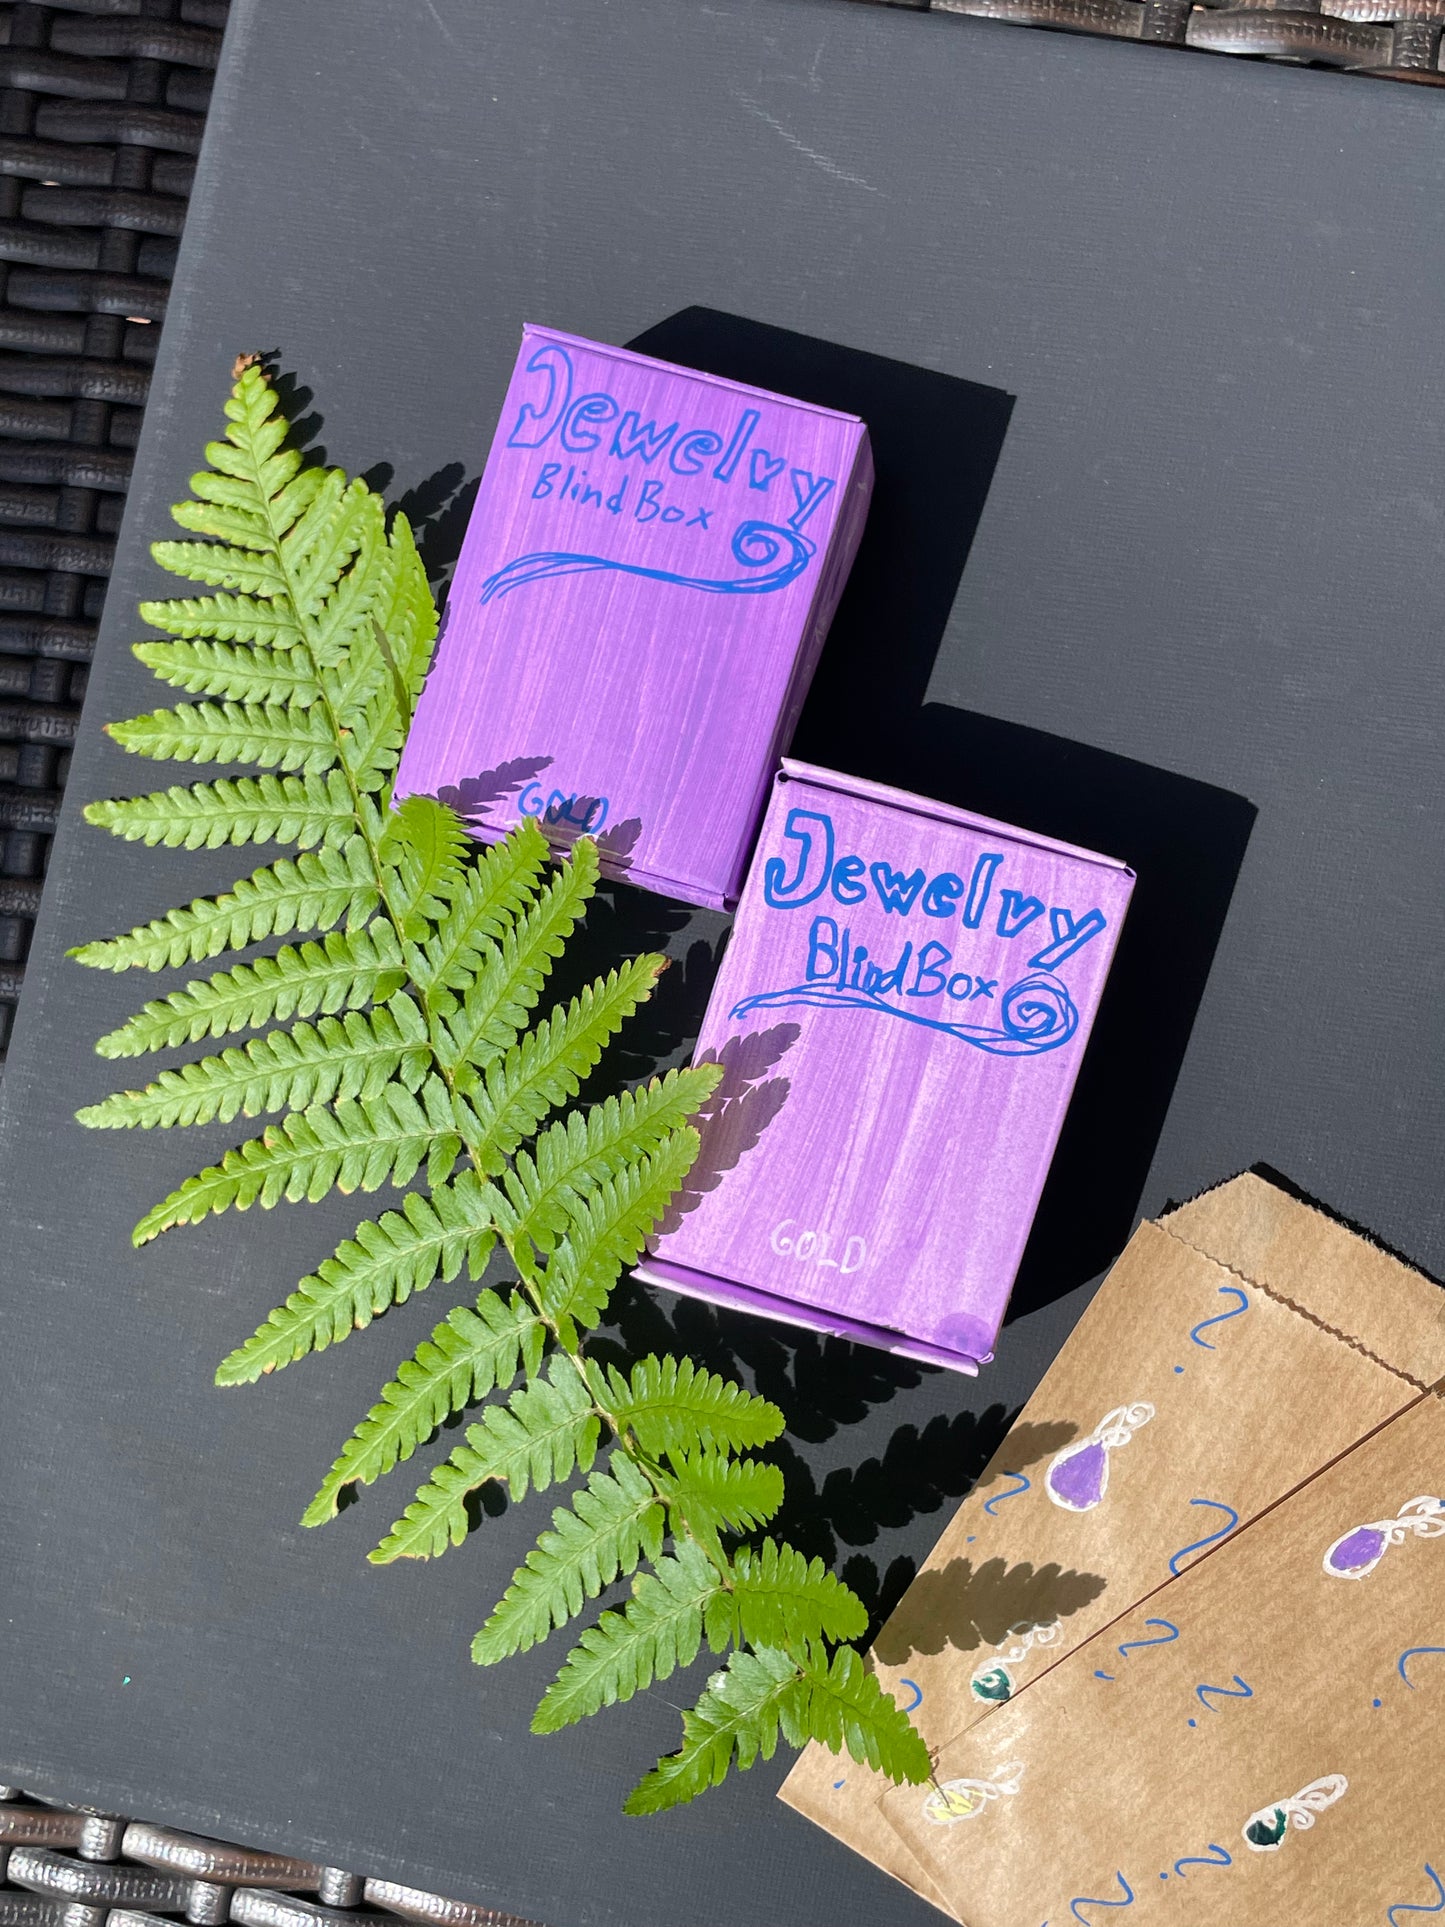 Jewelry
Blind Box
GOLD
Jewelry
Blind Box
GOLD
?
?
?
?
?
?
?
?
?
?
?